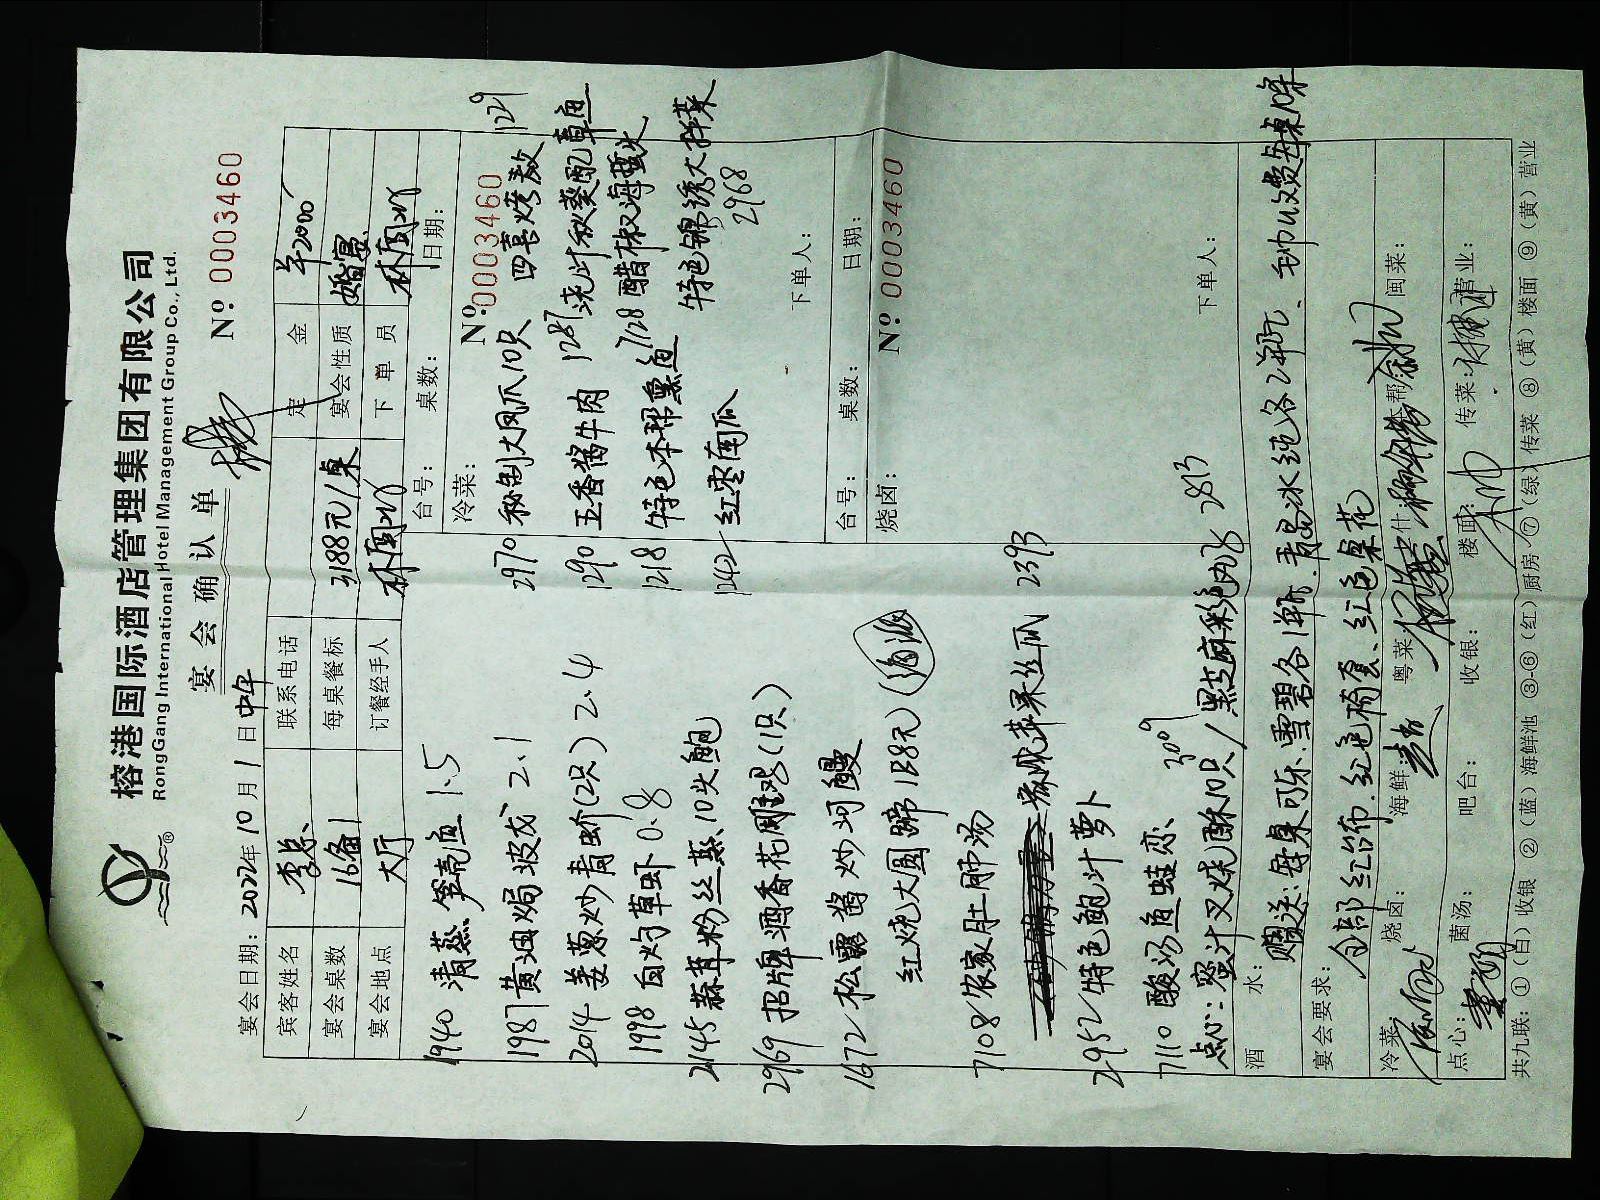 榕港国际酒店管理集团有限公司
RongGang International Hotel Management Group Co., Ltd.
宴会确认单
№ 0003460
宴会日期: 2022年10月1日 中午
宾客姓名 李总 联系电话 定金 羊2000
宴会桌数 16备1 每桌餐标 3188元/桌 宴会性质 婚宴
宴会地点 大厅 订餐经手人 下单员
台号: 桌数: 日期:
冷菜: № 0003460
1940 清蒸笋壳鱼 1.5
1987 黄油焗波龙 2.1
2014 姜葱炒青蟹(2只) 2.4
1998 白灼草虾 0.8
2145 蒜茸粉丝蒸10头鲍
2969 招牌酒香花雕鸡(1只)
1672 松露酱炒河鳗
红烧大圆蹄 128元
7108 农家肚肺汤
苹果丝瓜 2393
2952 特色鲍汁萝卜
7110 酸汤鱼蛙恋 3009
点心: 蜜汁叉烧酥10只/黑芝麻彩色 2813
2970 秘制大凤爪10只 四喜烤麸 1229
1290 五香酱牛肉 1287 秋葵配章鱼
1218 特色本帮熏鱼 7128 醋椒海蜇头
1242 红枣南瓜 特色锦绣大拌菜
2968
下单人:
台号: 桌数: 日期:
烧卤: № 0003460
下单人:
酒水: 赠送: 每桌可乐.雪碧各1瓶.青岛冰纯各2瓶、
宴会要求: 全部红台布.红色椅套、红色桌花
冷菜: 烧卤: 海鲜: 粤菜: 本帮: 闽菜:
点心: 菌汤: 吧台: 收银: 楼面: 传菜: 营业:
共九联: ①(白)收银 ②(蓝)海鲜池 ③-⑥(红)厨房 ⑦(绿)传菜 ⑧(黄)楼面 ⑨(黄)营业